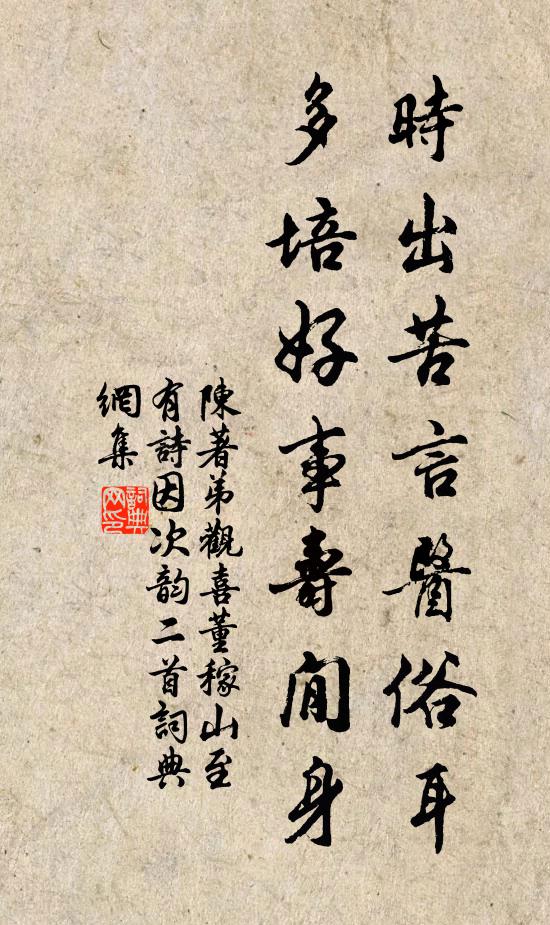 時出苦言醫俗耳
多培好事壽閒身
陳著弟觀喜董稼山至
有詩因次韵二首詞典
網集
詞典
网印